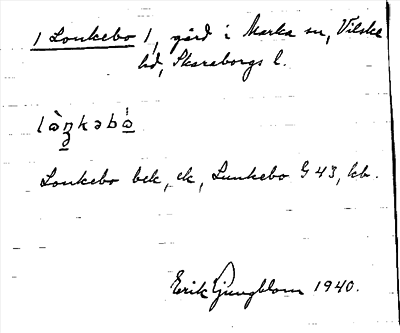 1 Lonkebo 1, gård i Marka sn, Vilske
hd, Skaraborgs l.
Lonkebo bek, ek, Lunkebo G 43, kb.
Erik Ljungblom 1940.